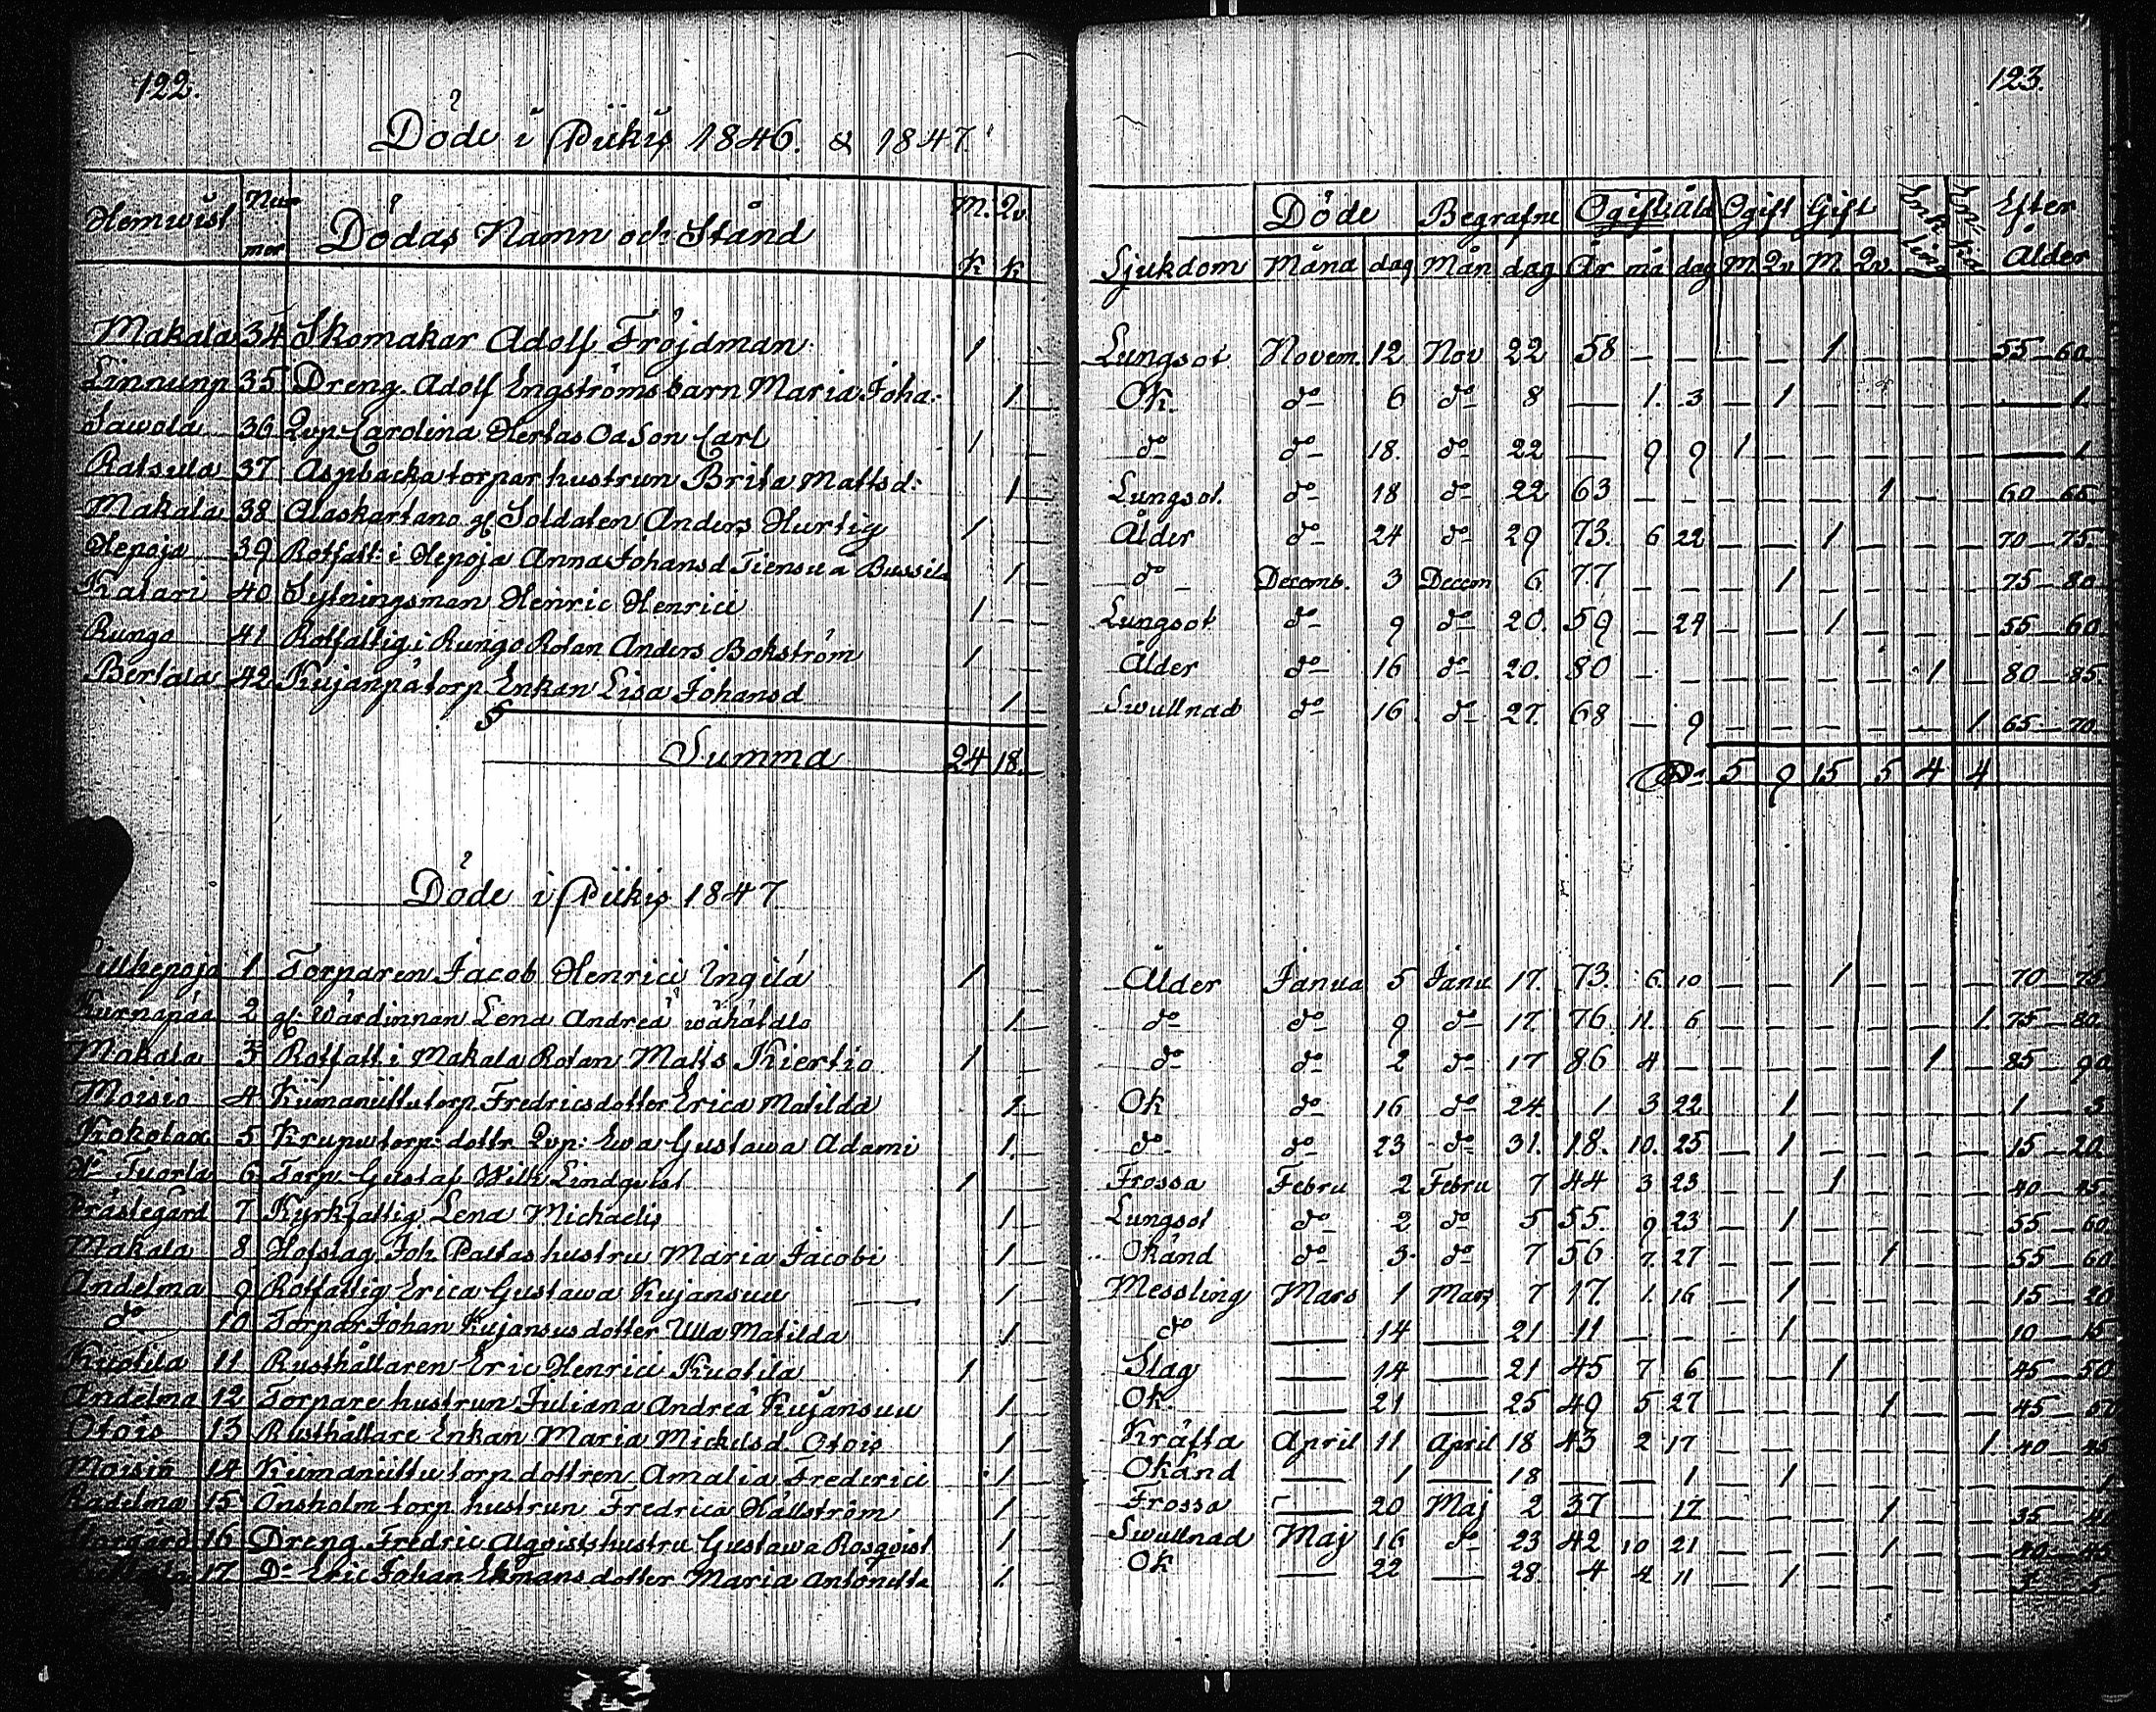 122.
Döde i Piikis 1846. & 1847.
Hemwist Nummer Dödas Namn och Stånd M.K Qv.K
Makala 34 Skomakar Adolf Fröjdman 1
Linnunp 35 Dreng. Adolf Engströms barn Maria Joha: 1
Sawola 36 Qvp Carolina Hertas Oä Son Carl 1
Raisula 37 Aspbacka torpar hustrun Brita Mattsd: 1
Makala 38 Alaskartano gl Soldaten Anders Hurtig 1
Hepoja 39 Rotfatt: i Hepoja Anna Johansd Tiensuu a Bussila 1
Katari 40 Sytningsman Henric Henrici 1
Rungo 41 Rotfattig i Rungo Rotan Anders Bokström 1
Bertala 42 Kujanpä torp Enkan Lisa Johansd 1
Summa 24 18.
Döde i Piikis 1847
Lillhepoja 1 Torparen Jacob Henrici Ingilä 1
Kurnapää 2 gl: Wärdinnan Lena Andreä wähätalo 1
Makala 3 Rotfatt i Makala Rotan Matts Kiertio 1
Moisio 4 Kiimaniittu torp. Fredricsdotter Erica Matilda 1
Kokolax 5 Krupu torp: dottr. Qvp: Ewa Gustawa Adami 1.
Tuorla 6 Torp. Gustaf Wilh. Lindqvist 1
Prästegård 7 Kyrkfattig Lena Michaelis 1
Makala 8 Hofslag. Joh Paltas hustru Maria Jacobi 1
Andelma 9 Rotfattig Erica Gustawa Kujansuu 1
do 10 Torpar Johan Kujansuus dotter Ulla Matilda 1
Kuotila 11 Rusthållaren Eric Henrici Kuotila 1
Andelma 12 Torpare hustrun Juliana Andreä Kujansuu 1
Otois 13 Rusthållare Enkan Maria Mickelsd. Otois 1
Moisio 14 Kiimaniittu torp dottren Amalia Frederici 1
Radelma 15 Önsholm torp. hustrun Fredrica Hällström 1
16 Dreng Fredric Alqvists hustru Gustawa Rosqvist 1
17 Do Eric Johan Ekmans dotter Maria Antonetta 1.
123.
Döde Begrafne Ogift ålde Ogift Gift Enkling Enkia Efter Ålder
Sjukdom Måna dag Mån dag År må dag M Qv M. Qv.
Lungsot Novem. 12 Nov 22 58 — — — — 1 — — — 55—60.
Ok. do 6 do 8 — 1. 3 — 1 — — — — — 1.
do do 18. do 22 — 9 9 1 — — — — — — 1
Lungsot. do 18 do 22 63 — — — — — 1 — — 60—65
Ålder do 24 do 29 73. 6 22 — — 1 — — — 70—75.
do Decemb. 3 Decem 6 77 — — — 1 — — — — 75—80
Lungsot do 9 do 20. 59 — 29 — — 1 — — — 55—60
Ålder do 16 do 20. 80 — — — — — — 1 — 80—85.
Swullnad do 16 do 27. 68 — 9 — — — — — 1 65—70.
Sa 5 9 15 5 4 4
Ålder Janua 5 Janu 17. 73. 6. 10 — — 1 — — — 70—75
do do 9 do 17. 76. 11. 6 — — — — — 1. 75—80.
do do 2 do 17 86 4 — — — — — 1 — 85—90
Ok do 16 do 24. 1 3 22 — 1 — — — — 1—3
do do 23 do 31. 18. 10. 25 — 1 — — — — 15—20.
Frossa Febru 2 Febru 7 44 3 23 — — 1 — — — 40—45.
Lungsot do 2 do 5 55. 9 23 — 1 — — — — 55—60
Okänd do 3. do 7 56 7. 27 — — — 1 — — 55—60
Messling Mars 1 Mars 7 17. 1. 16 — 1 — — — — 15—20
do — 14 — 21 11 — — — 1 — — — — 10—15
Slag — 14 — 21 45 7 6 — — 1 — — — 45—50
Ok. — 21 — 25 49 5 27 — — — 1 — — 45—50
Kräfta April 11 April 18 43 2 17 — — — — — 1. 40—45
Okänd — 1 — 18 — — 1 — 1 — — — — — 1
Frossa — 20 Maj 2 37 — 17 — — — 1 — — 35—40
Swullnad Maj 16 do 23 42 10 21 — — — 1 — — 40—45
Ok — 22 — 28. 4 4 11 — 1 — — — — 5